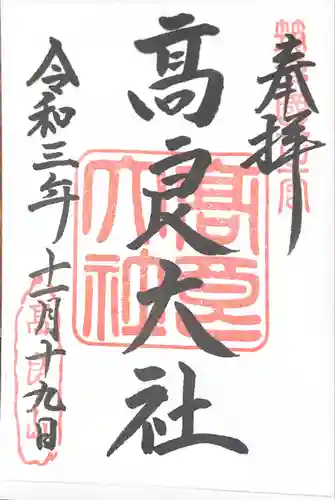 奉拝
高良大社
令和三年十一月十九日
高良大社